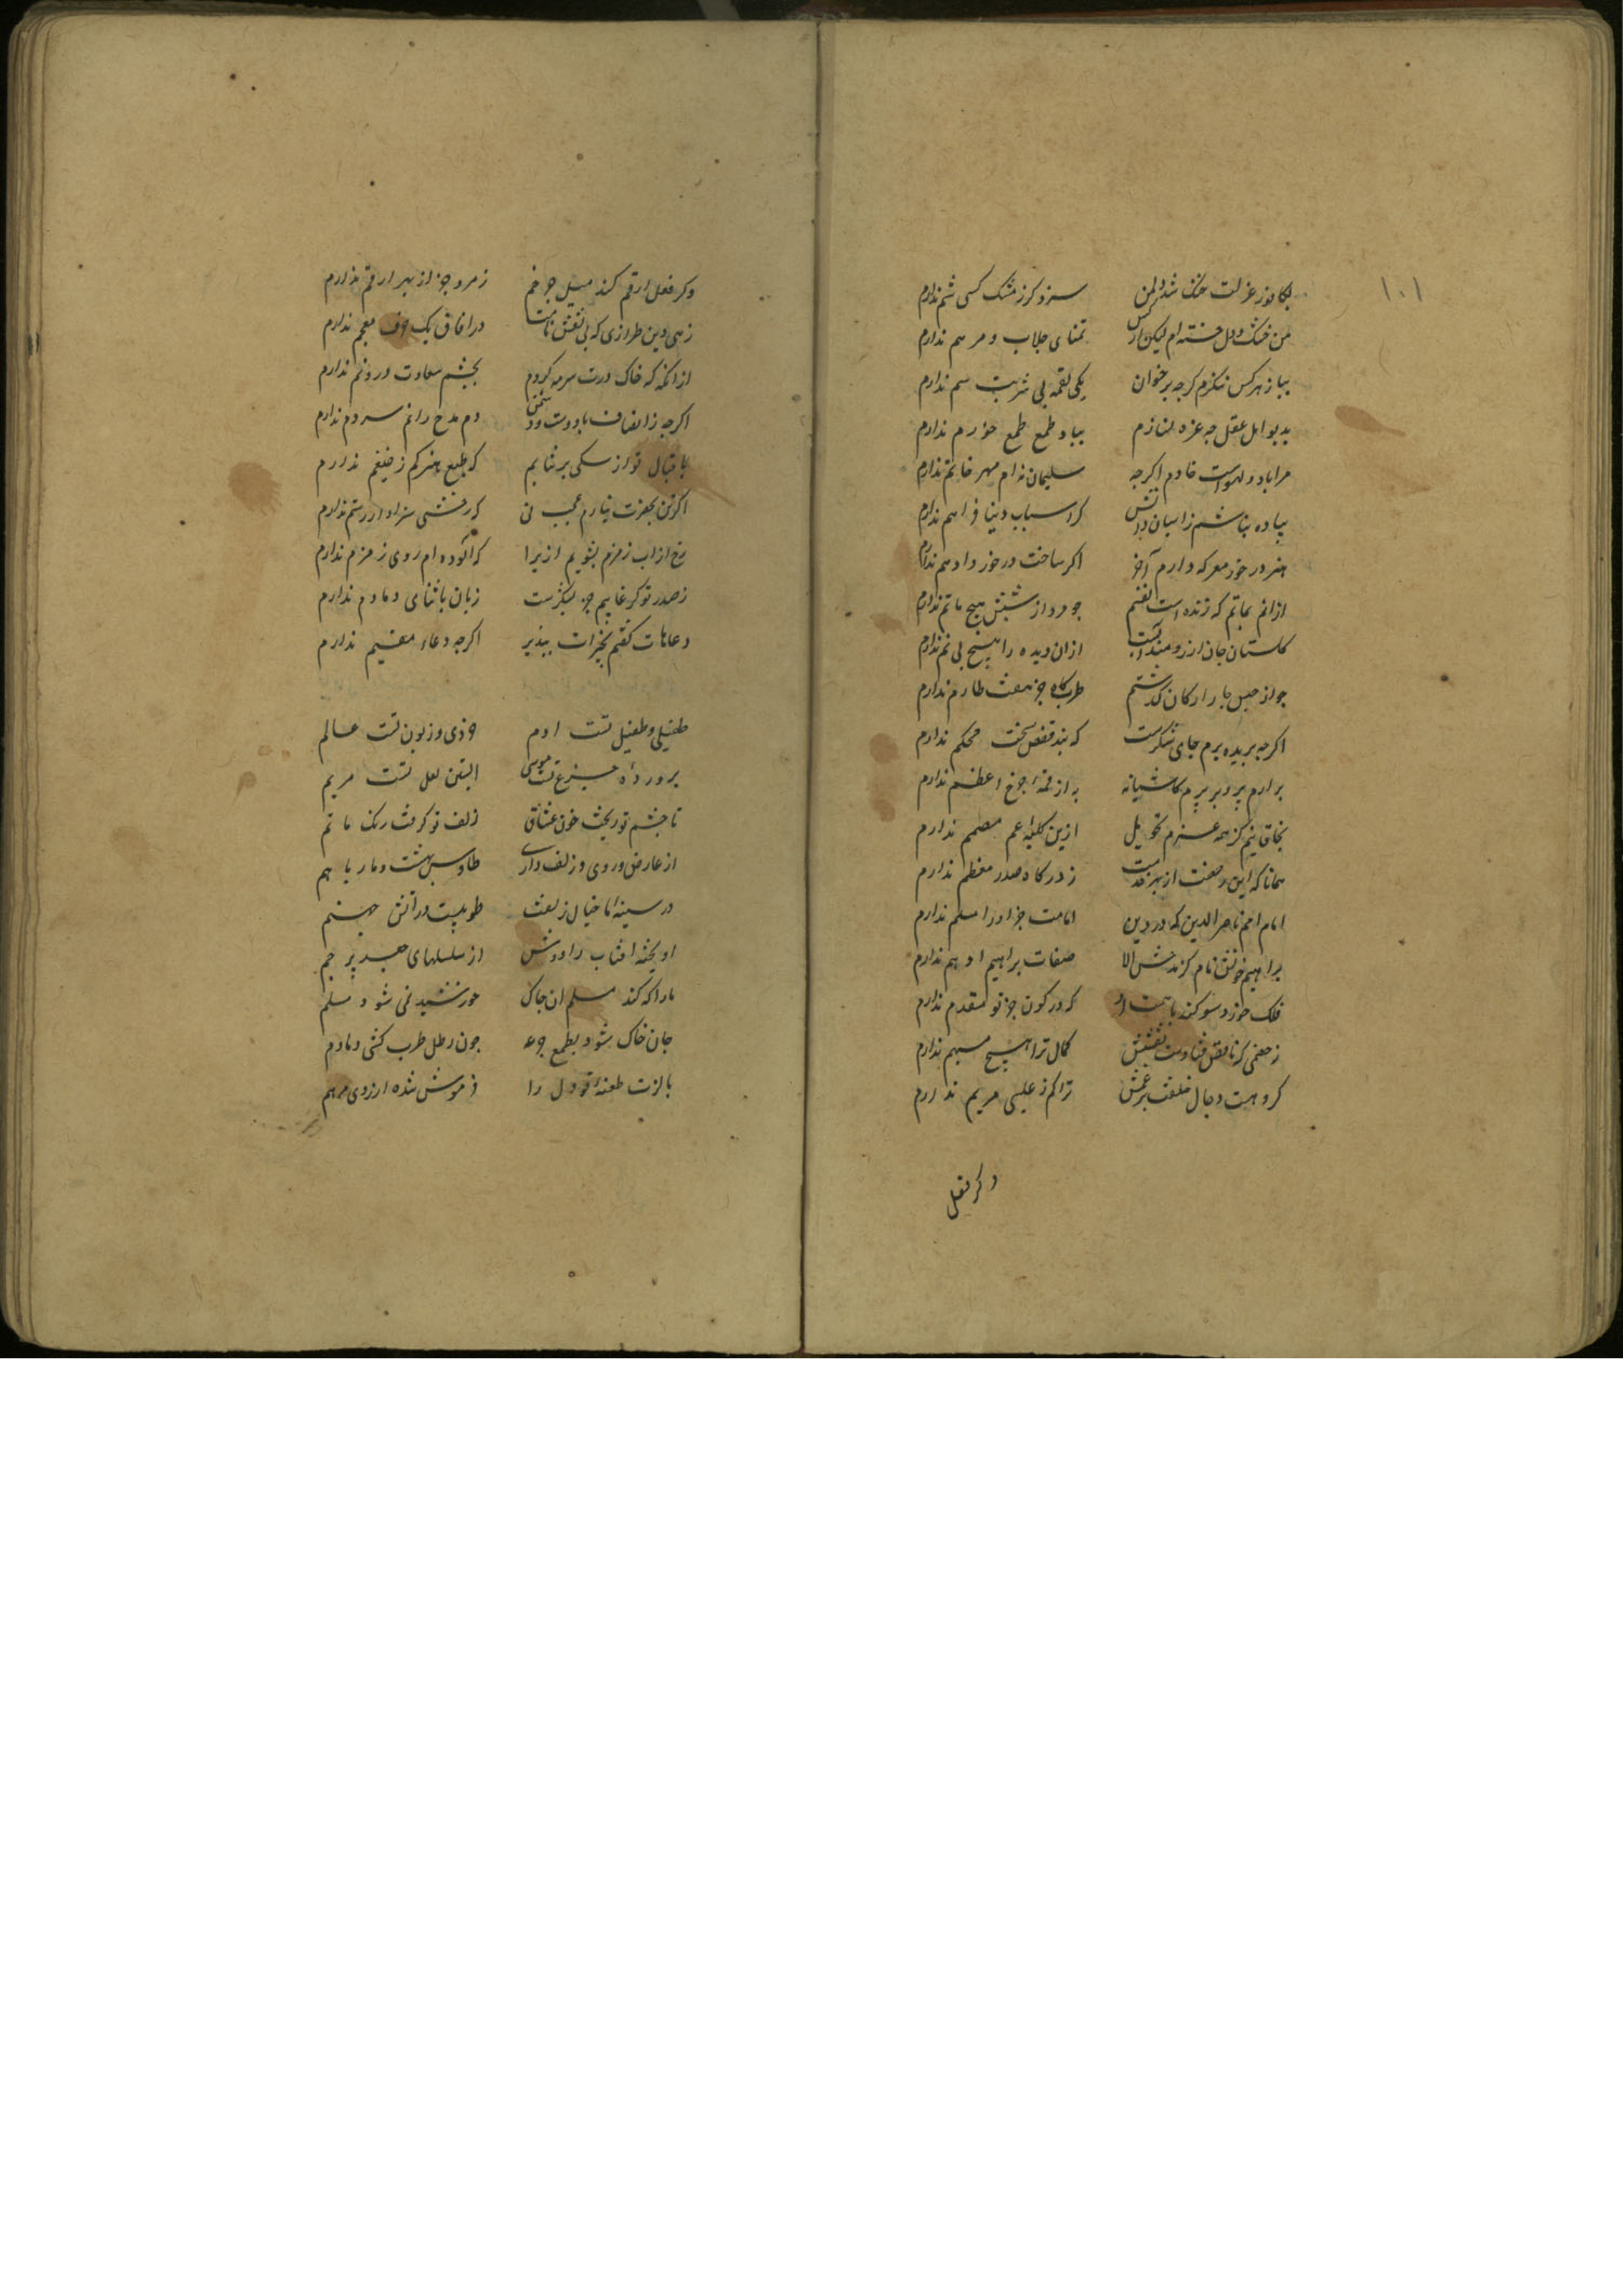 ۱۰۱
بکافور عزلت خنک شد دل من سزد کرز مشک کسی شم ندارم
من خشک دل خسته ام لیکن از کس تمنای جلاب و مرهم ندارم
بباز هرکس ننکرم کرجه برخوان یکی لقمه بی شربت سم ندارم
بدیو اهل عقل جه عزه لنازم بباد طمع طمع خورم ندارم
مرا باد و دیو است خادم اکرجه سلیمان نه ام مهر خاتم ندارم
پیاده نباشم ز اسبان دانش کر اسباب دنیا فراهم ندارم
هنر در خور معرکه دارم آخر اکر ساخت در خورد ادهم ندارم
ازانم بماتم که زنده است نفسم جو مرد از شتنش هیچ ماتم ندارم
کلستان جان ارزومند آبست ازان دیده را هیچ بی نم ندارم
جو از حبس جار ارکان کذشتم طربکاه جز هفت طارم ندارم
اکرجه بریده برم جای شکرست که بند قفص سخت محکم ندارم
برارم پر و بر پرم کاشیانه به از قمه جرخ اعظم ندارم
بخاقانیم کز همه عزم تحویل ازین کلبه غم مصمم ندارم
همانا که این رخصت از بهر خدمت ز درکاه صدر معظم ندارم
امام امم ناصر الدین که در دین امامت جز او را مسلم ندارم
براهیم خوانش نام کز مدحش الا صفات براهیم ادهم ندارم
فلک خورد سوکند باهمت او که در کون جز تو مقدم ندارم
کمال ترا هیچ مبهم ندارم
کر و هست دجال خلقت برغمش ترا کم ز عیسی مریم ندارم
وکر فعل
وکر فعل ارقم کند میل جرخم زمرد جز از بهر ارقم ندارم
زهی دین طرازی که بی نقش نامت در افاق یک حرف معجم ندارم
ازانکه که خاک درت سرمه کردم بجشم سعادت درو نم ندارم
اکرجه ز انصاف با دوست و دشمن دم مدح رانم سر دم ندارم
باقبال تو از سکی برنتابم که طبع هنر کم ز ضیغم ندارم
اکر تن بحضرت نیارم عجب نی که رخشی سزاوار رستم ندارم
رخ از اب زمزم بشویم ازیرا که الوده ام روی زمزم ندارم
ز صدر تو کر غایبم جز بشکرت زبان باثنای دمادم ندارم
دعاهات کفتم بخیرات بپذیر اکرجه دعاء مقیم ندارم
طفیلی و طفیل تست ادم خردی و زبون تست عالم
پرورده جزع تست موسی ابستن لعل تست مریم
تا جشم تو ریخت خون عشاق زلف تو کرفت رنک ماتم
از عارض و روی و زلف داری طاوس بهشت و مار با هم
در سینه ما خیال زلفت طوبیست در آتش جهنم
اویخته افتاب را دوش از سلسلهای جعد پر خم
ما را که کند مسلم ان جاک خورشید نمی شود مسلم
جان خاک شود بطمع جرعه جون رطل طرب کشی دمادم
با لذت طعنه تو دل را فرموش شده ارزوی مرهم